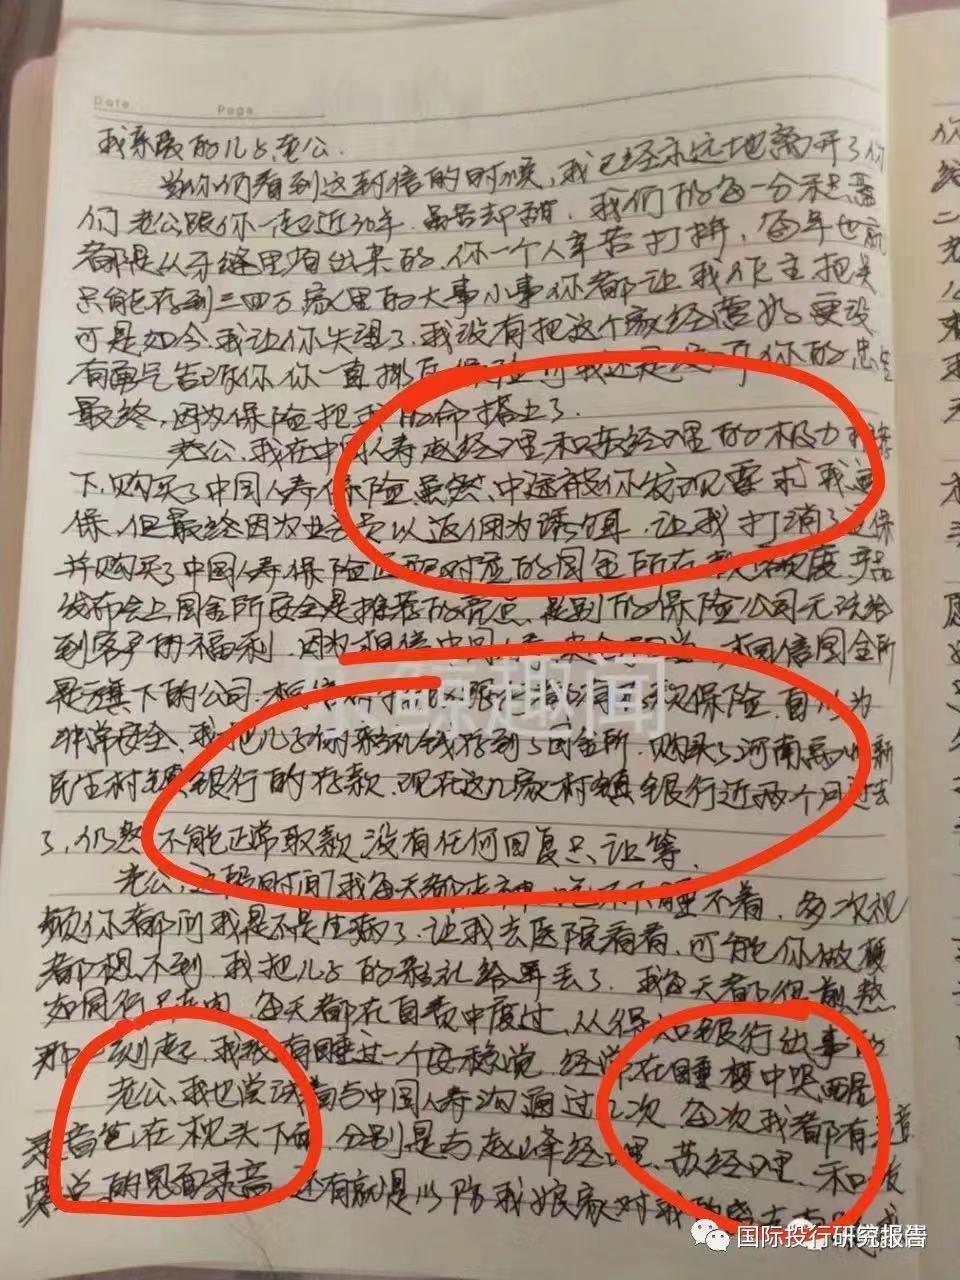 Date Page
我亲爱的儿子,老公.
当你们看到这封信的时候,我已经永远地离开了你
们 老公跟你一起近30年.虽苦却甜.我们的每一分积蓄
都是从牙缝里省出来的.你一个人辛苦打拼,每年也就
只能存到三四万 家里的大事小事你都让我作主把关
可是如今.我让你失望了.我没有把这个家经营好 更没
有勇气告诉你 你一直排斥保险 可我还是 你的忠告
最终,因为保险把我的命搭上了.
老公,我在中国人寿赵经理和苏经理的极力推荐
下,购买了中国人寿保险.虽然,中途被你发现要求我退
保.但最终因为业务员以返佣为诱饵.让我打消了退保
并购买了中国人寿保险匹配对应的国金所存款额度.产品
发布会上国金所安全是推荐的亮点.是别的保险公司无法给
到客户的福利.因为相信中国人寿 相信国金所
是旗下的公司. 保险.自认为
非常安全,我把儿子的彩礼钱存到了国金所.购买了河南禹州新
民生村镇银行的存款.现在这几家村镇银行近两个月过去
了,仍然不能正常取款 没有任何回复只让等.
老公,这段时间我每天都 睡不着.多次视
频你都问我是不是生病了.让我去医院看看.可能你做梦
都想不到.我把儿子的彩礼给弄丢了.我每天都很煎熬
如同行尸走肉.每天都在自责中度过.从得知银行出事的
那一刻起.我没有睡过一个安稳觉.经常在睡梦中哭醒
老公,我也尝试着与中国人寿沟通过几次.每次我都有
录音笔在枕头下面.分别是与赵峰经理.苏经理.和
的见面录音.还有就是以防我娘家对我
乐鲸趣闻
国际投行研究报告